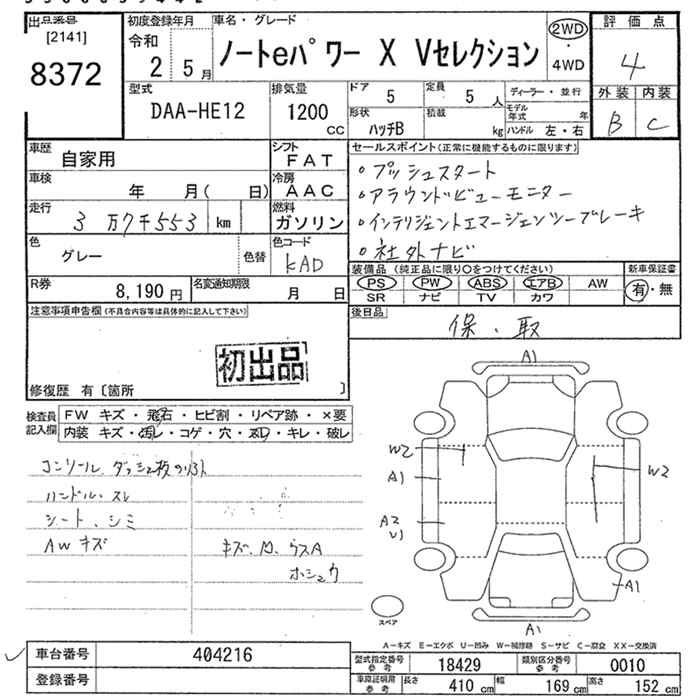 出品番号
[2141]
8372
初度登録年月
令和
2 5月
車名・グレード
ノートeパワー X Vセレクション
2WD
・
4WD
評価点
4
外装 内装
B C
型式
DAA-HE12
排気量
1200
CC
ドア 5
定員 5 人
形状 ハッチB
積載 kg
ディーラー・並行
モデル年式 年
ハンドル 左・右
車歴 自家用
シフト FAT
車検 年 月( 日)
冷房 AAC
走行 3万7千553 km
燃料 ガソリン
色 グレー 色替
色コード KAD
R券 8,190円
名変通知期限 月 日
セールスポイント(正常に機能するものに限ります)
。プッシュスタート
。アラウンドビューモニター
。インテリジェントエマージェンシーブレーキ
。社外ナビ
装備品(純正品に限り○をつけてください)
新車保証書
PS PW ABS エアB AW
SR ナビ TV カワ
有・無
後日品
保、取
注意事項申告欄(不具合内容等は具体的に記入して下さい)
初出品
修復歴 有〔箇所 〕
検査員記入欄
FW キズ・飛石・ヒビ割・リペア跡・×要
内装 キズ・汚れ・コゲ・穴・スレ・キレ・破レ
ハンドル、スレ
シート、シミ
AWキズ
キズ、凹、ウスA
ホシュウ
A1
W2
A1
A2
U1
W2
A1
A1
スペア
A-キズ E-エクボ U-凹み W-補修跡 S-サビ C-腐食 XX-交換済
車台番号 404216
登録番号
型式指定番号 参考 18429
類別区分番号 参考 0010
車庫証明用 参考
長さ 410 cm
幅 169 cm
高さ 152 cm